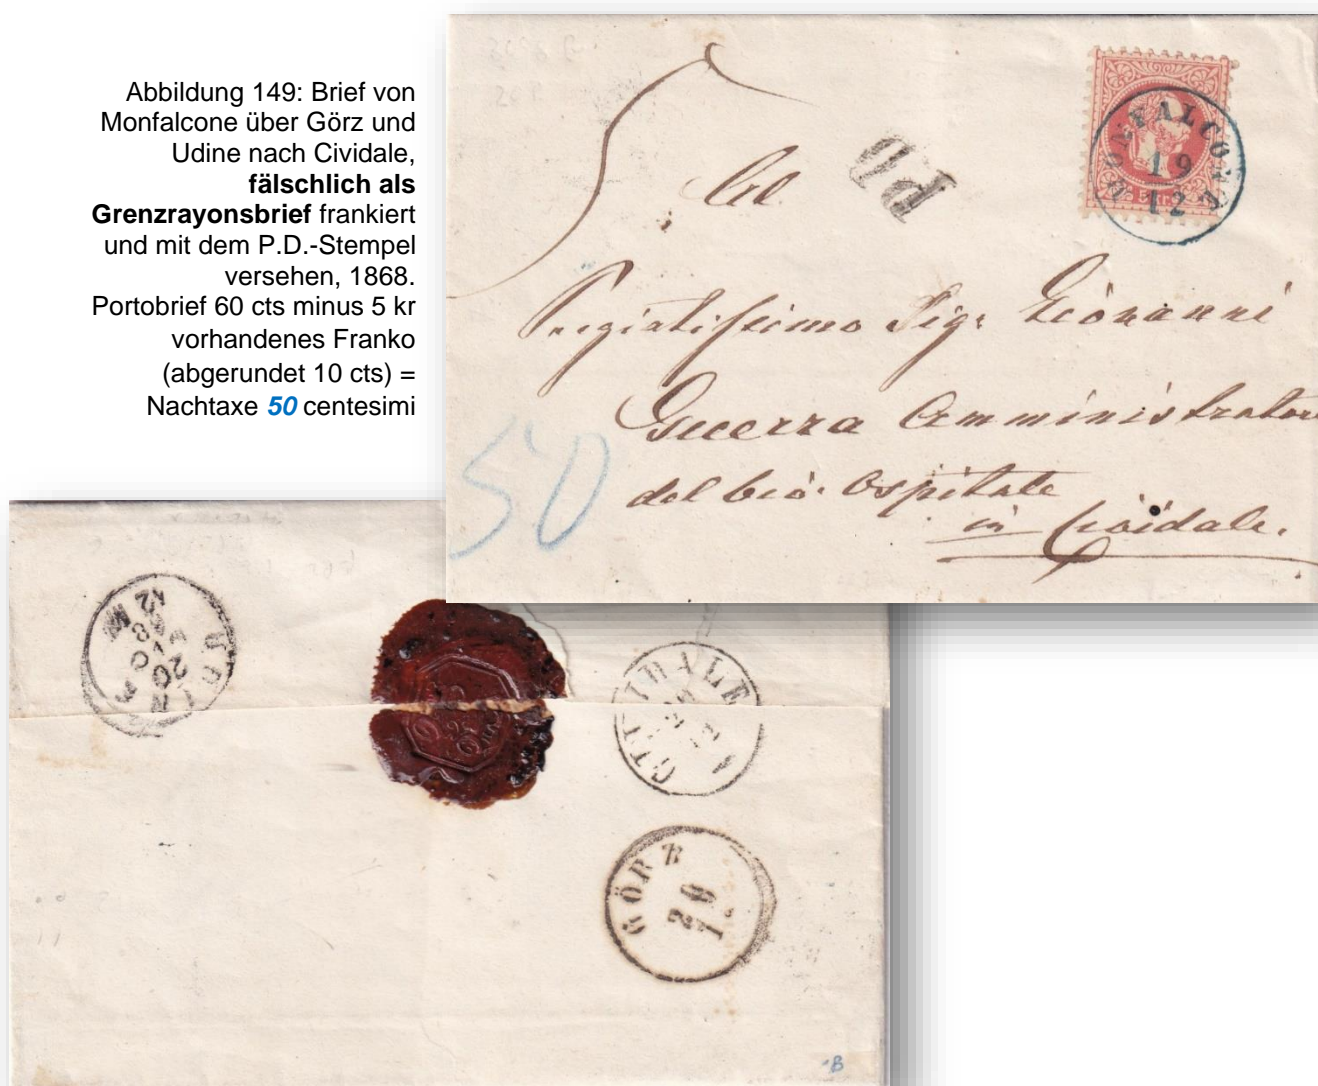 Abbildung 149: Brief von
Monfalcone über Görz und
Udine nach Cividale,
fälschlich als
Grenzrayonsbrief frankiert
und mit dem P.D.-Stempel
versehen, 1868.
Portobrief 60 cts minus 5 kr
vorhandenes Franko
(abgerundet 10 cts) =
Nachtaxe 50 centesimi
PD
MONFALCONE
19
12
Al
Pregiatissimo Sig: Giovanni
Amministratore
del Ospitale
in Cividale.
50
UDINE
20
12 M
CIVIDALE
GÖRZ
20